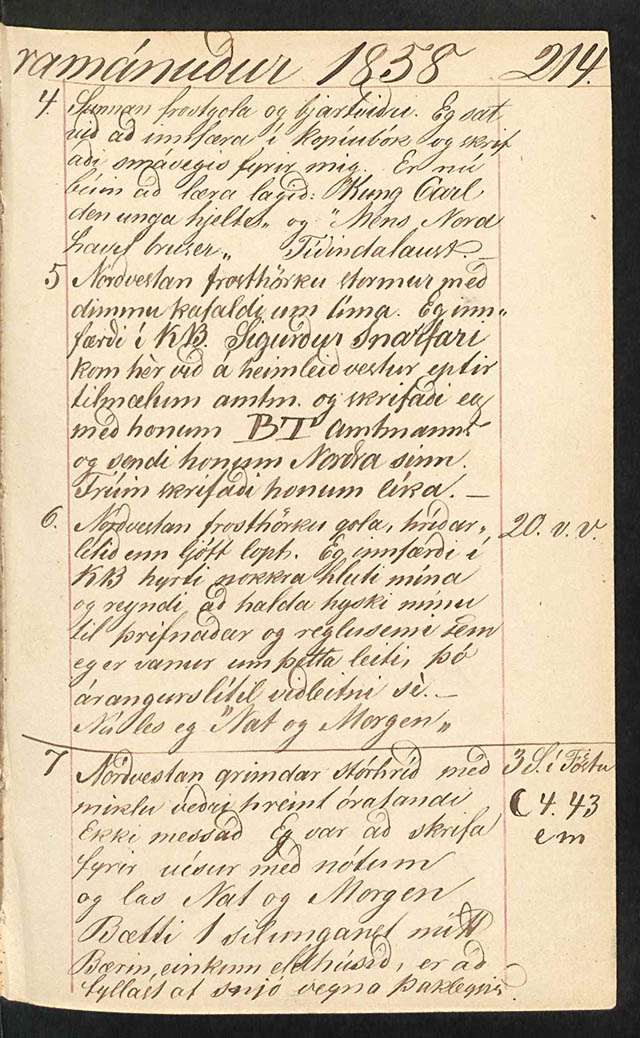 ramánuður 1858 214.
4. Sunnan frostgola og bjartviðri. Eg sat
við að innfæra í kopíubók og skrif
aði smávegis fyrir mig. Er nú
búin að læra lagið: "Kung Carl
den unga hjelte" og "Mens Nord
havet bruser" Tíðindalaust. —
5 Norðvestan frosthörku stormur með
dimmu kafaldi um tíma. Eg inn-
færði í KB. Sigurður Snarfari
kom hèr við á heimleið vestur eptir
tilmælum amtm. og skrifaði eg
með honum BT Amtmanns
og sendi honum Norðra sinn.
Frúin skrifaði honum líka. —
6. Nórðvestan frosthörku gola, hríðar- 20. v. v.
lítið enn ljóft lopt. Eg innfærði í
KB hyrti nokkra hluti mína
og reyndi að halda hyski mínu
til þrifnaðar og reglusemi sem
eg er vanur um þetta leiti, þó
árangurslítil viðleitni sè. —
Nú les eg "Nat og Morgen"
7 Nórðvestan grimdar stórhríð með 3 S. í Föstu
miklu veðri hreint óratandi ☾ 4. 43
Ekki messað Eg var að skrifa e m
fyrir vísur með nótum
og las Nat og Morgen
Bætti 1 silunganet mitt
Bærin, einkum eldhúsið, er að
fyllast af snjó vegna þaklegsis.